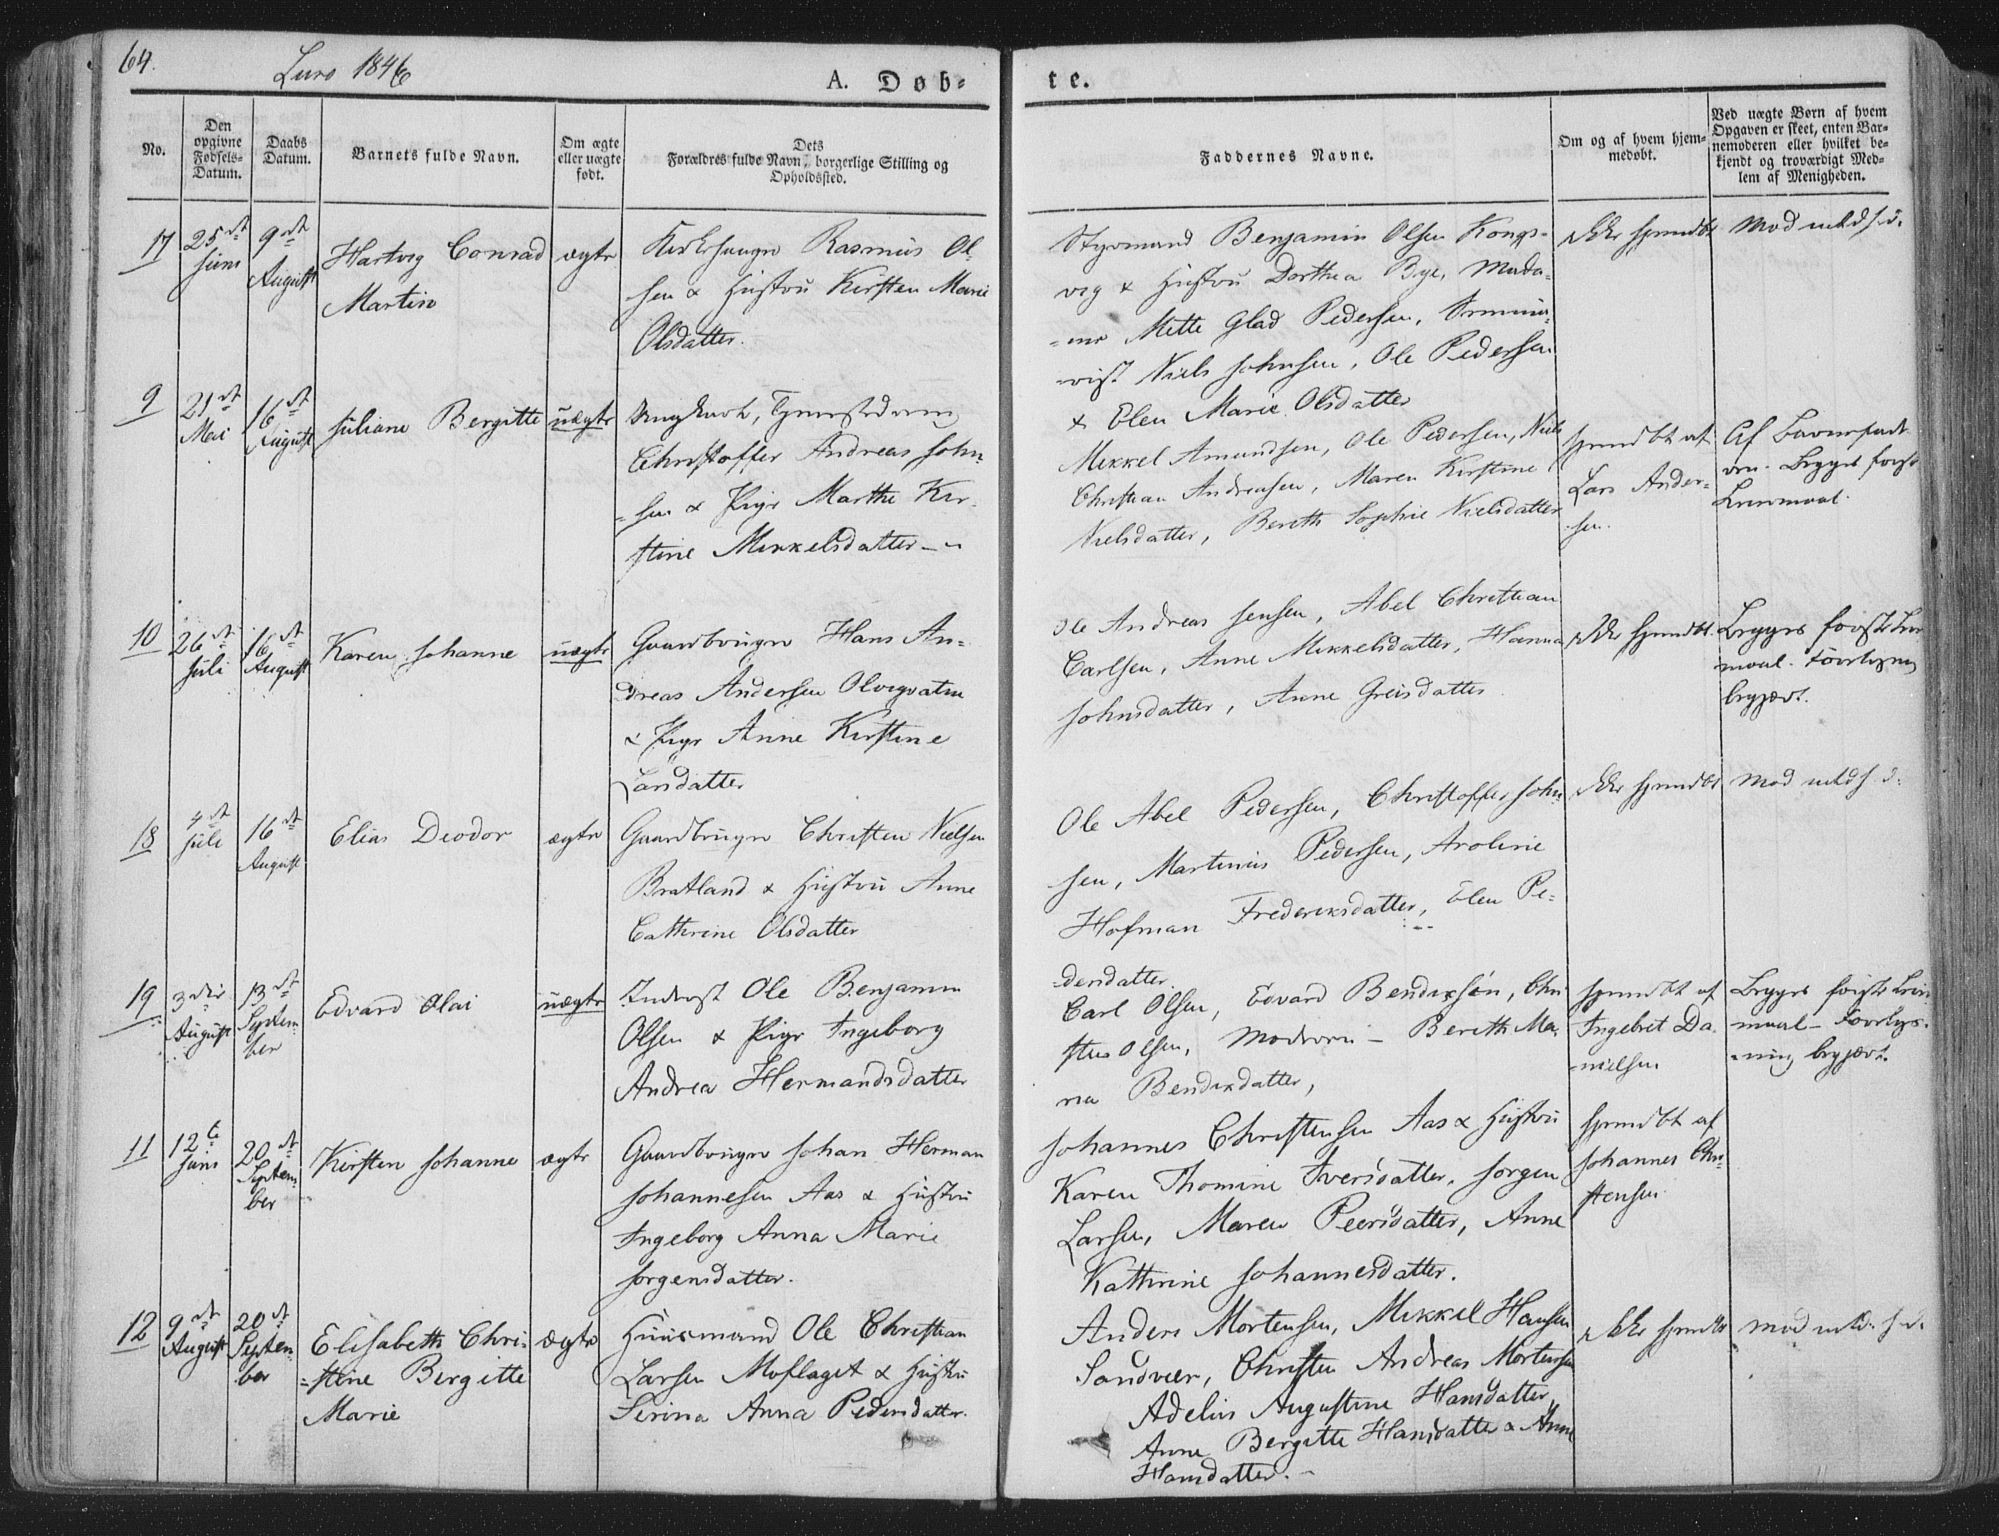 64.
Lurø 1846
A. Døb-
te.
No.
Den opgivne Fødsels-Datum.
Daabs Datum.
Barnets fulde Navn.
Om ægte eller uægte født.
Dets Forældres fulde Navn, borgerlige Stilling og Opholdssted.
Faddernes Navne.
Om og af hvem hjem-
medøbt.
Ved uægte Børn af hvem
Opgaven er skeet, enten Bar-
nemoderen eller hvilket be-
kjendt og troværdigt Med-
lem af Menigheden.
17
25de Juni
9de August
Hartvig Conrad
Martin
ægte
Rasmus Ol-
sen & Hustru Kirsten Marie
Olsdatter.
Styrmand Benjamin Olsen Kongs-
vig & Hustru Dorthea Bye, Mada-
me Mette Glad Pedersen,
Niels Johnsen, Ole Pedersen
& Elen Marie Olsdatter
9
21de Mai
16de August
Juliane Bergitte
uægte
Ungkarl,
Christoffer Andreas John-
sen & Pige Marthe Kir-
stine Mikkelsdatter
Mikkel Amundsen, Ole Pedersen, Niels
Christian Andreasen, Maren Kirstine
Nielsdatter, Bereth Sophie Nielsdatter
hjemdøbt af
Lars Ander-
sen.
Af Barnefad-
eren. Begges første
Leiermaal.
10
26de Juli
16de August
Karen Johanne
uægte
Gaardbruger Hans An-
dreas Andersen
& Pige Anne Kirstine
Larsdatter
Ole Andreas Jensen, Abel Christian
Carlsen, Anne Mikkelsdatter, Hanna
Johnsdatter, Anne Greisdatter
ikke hjemdøbt
Begges første Leier-
maal.
begjært.
18
4de Juli
16de August
Elias Deodor
ægte
Gaardbruger Christen Nielsen
Bratland & Hustru Anne
Cathrine Olsdatter
Ole Abel Pedersen, Christoffer John-
sen, Martinus Pedersen, Aroline
Hofman Frederiksdatter, Elen Pe-
dersdatter.
ikke hjemdøbt
19
3die August
13de Septem-
ber
Edvard Olai
uægte
Inderst Ole Benjamin
Olsen & Pige Ingeborg
Andrea Hermandsdatter
Carl Olsen, Edvard Bendixsen, Chri-
sten Olsen, Moderen - Bereth Ma-
ria Bendixdatter,
hjemdøbt af
Ingebret Da-
nielsen
Begges første Leier-
maal - Foreløs-
ning begjært.
11
12te Juni
20de Septem-
ber
Kirsten Johanne
ægte
Gaardbruger Johan Herman
Johannesen Aas & Hustru
Ingeborg Anna Marie
Jorgensdatter.
Johannes Christensen Aas & Hustru
Karen Thomine Iversdatter, Jorgen
Larsen, Maren Peersdatter, Anne
Kathrine Johannesdatter.
hjemdøbt af
Johannes Chri-
stensen
12
9de August
20de Septem-
ber
Elisabeth Chri-
stine Bergitte
Marie
ægte
Huusmand Ole Christian
Larsen Moflaget & Hustru
Sirina Anna Pedersdatter.
Anders Mortensen, Mikkel Hansen
Sandvær, Christen Andreas Mortensen
Adelus Augustine Hansdatter,
Anne Bergitte Hansdatter & Anne
Hansdatter.
ikke hjemdøbt